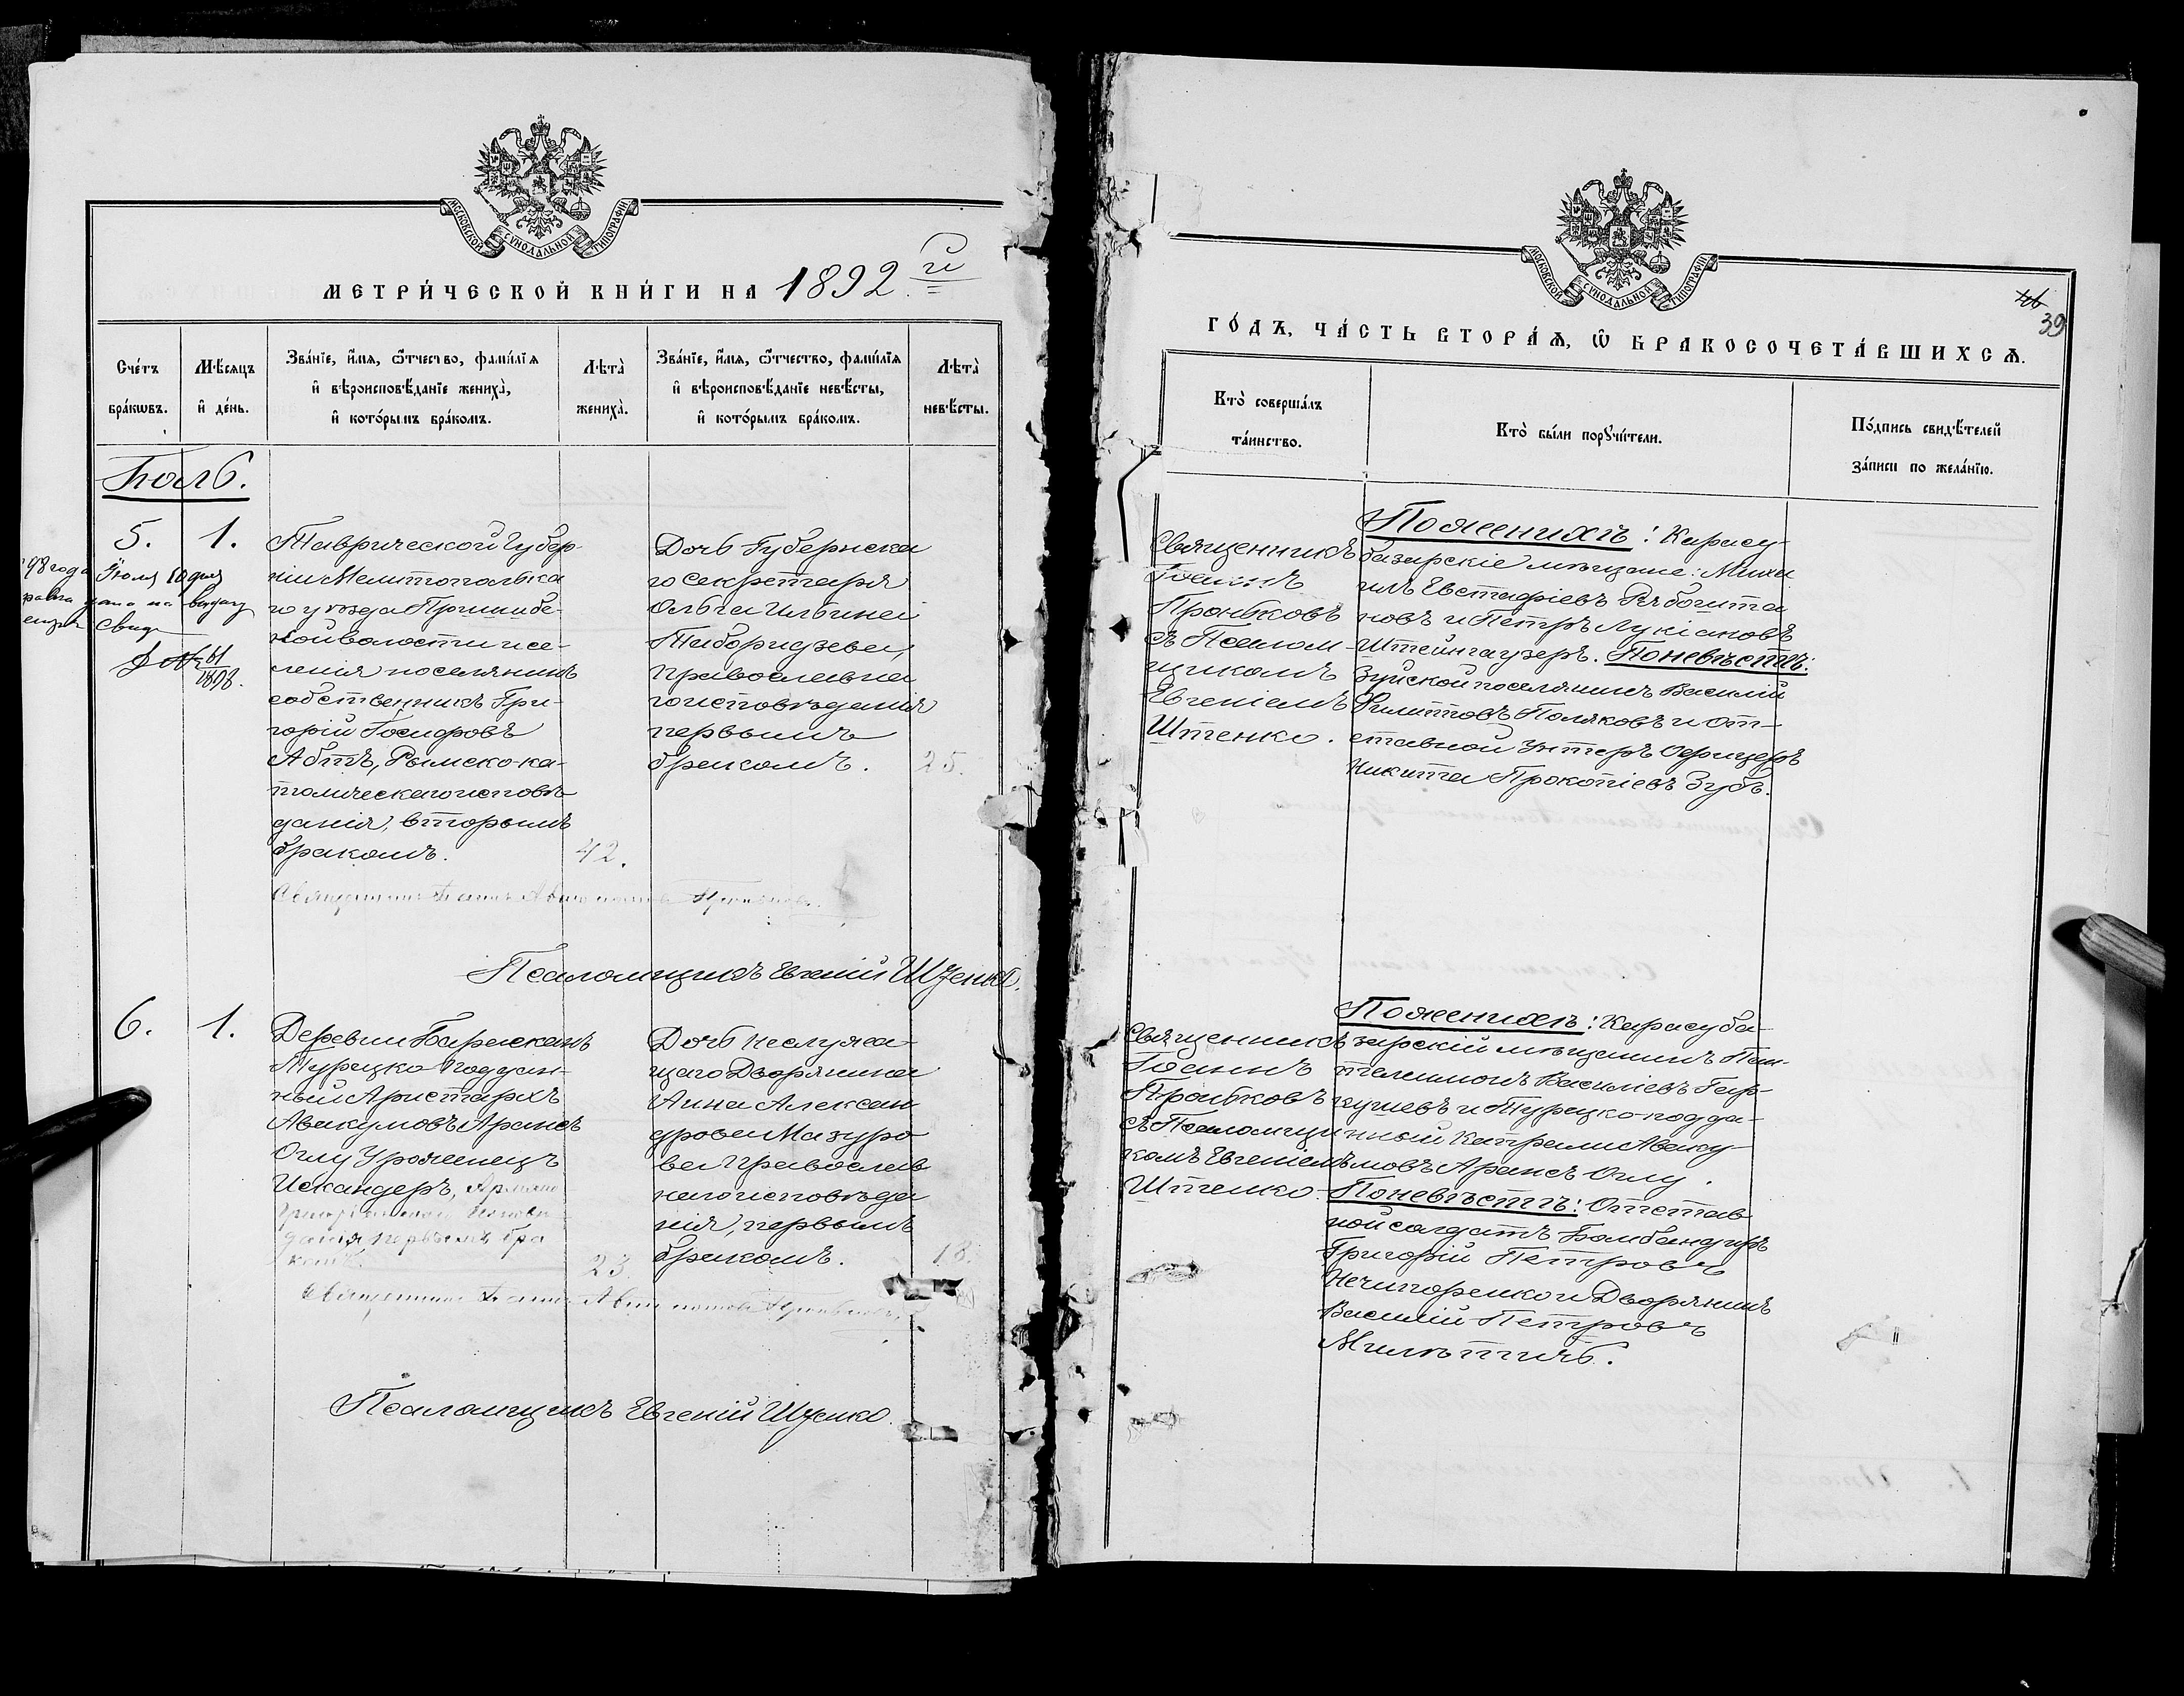 МОСКОВСКОЙ СѴНОДАЛЬНОЙ ТИПОГРАФІИ
МЕТРИ́ЧЕСКОЙ КНИ́ГИ НА 1892й
Сче́тъ
бра́кѡвъ.
Мѣ́сяцъ
и҆ де́нь.
Зва́нїе, и҆́мѧ, ѻ҆́тчество, фами́лїѧ
и҆ вѣроисповѣ́данїе жениха̀,
и҆ кото́рымъ бра́комъ.
Лѣта̀
жениха̀.
Зва́нїе, и҆́мѧ, ѻ҆́тчество, фами́лїѧ
и҆ вѣроисповѣ́данїе невѣ́сты,
и҆ кото́рымъ бра́комъ.
Лѣта̀
невѣ́сты.
Іюль.
5.
1.
98 года
Іюля 10 дня
на выдачу
Свид
1898.
Таврической Губер-
ніи Мелитопольска
го уѣзда Пришибс-
кой волости и се-
ленія поселянинъ
собственникъ Гри-
горій Іосифовъ
Абтъ, Римско-ка-
толическаго исповѣ-
данія, вторымъ
бракомъ.
42.
Дочь Губернска
го Секретаря
Ольга Ильина
Православна
го исповѣданія
первымъ
бракомъ.
25.
Священникъ Іоаннъ
Псаломщикъ Евгеній
6.
1.
Деревни
Турецко-поддан-
ный Аристархъ
Авакумовъ Арансъ
Оглу Уроженецъ
Искандеръ, Армяно
Григоріанскаго исповѣ
данія первымъ бра
комъ.
23.
Дочь неслужа-
щаго Дворянина
Анна Алексан
дрова Мазуро
ва Православ
наго исповѣда
нія, первымъ
бракомъ.
18.
Священникъ Іоаннъ
Псаломщикъ Евгеній
МОСКОВСКОЙ СѴНОДАЛЬНОЙ ТИПОГРАФІИ
39
ГО́ДЪ, ЧА́СТЬ ВТОРА́Ѧ, Ѡ҆ БРАКОСОЧЕТА́ВШИХСѦ.
Кто̀ соверша́лъ
та́инство.
Кто̀ бы́ли порꙋчи́тели.
По́дпись свидѣ́телей
за́писи по жела́нїю.
Священникъ
Іоаннъ
Проньковъ
съ Псалом-
щикомъ
Евгеніемъ
По женихѣ: Карасу-
базарскіе мѣщане: Миха
илъ Евстафіевъ
новъ и Петръ Лукіановъ
Штейнгауеръ. По невѣстѣ:
Зуйской поселянинъ Василій
Филиповъ Поляковъ и От-
ставной Унтеръ Офицеръ
Никита Прокопіевъ Зубъ.
Священникъ
Іоаннъ
Проньковъ
съ Псаломщи
комъ Евгеніемъ
По женихѣ: Карасуба-
зарскій мѣщанинъ Пан-
телимонъ Василіевъ
и Турецко-подда-
нный Аваку-
мовъ Арансъ Оглу.
По невѣстѣ: Отстав
ной солдатъ Бомбандиръ
Григорій Петровъ
Нечипоренко и Дворянинъ
Василій Петровъ